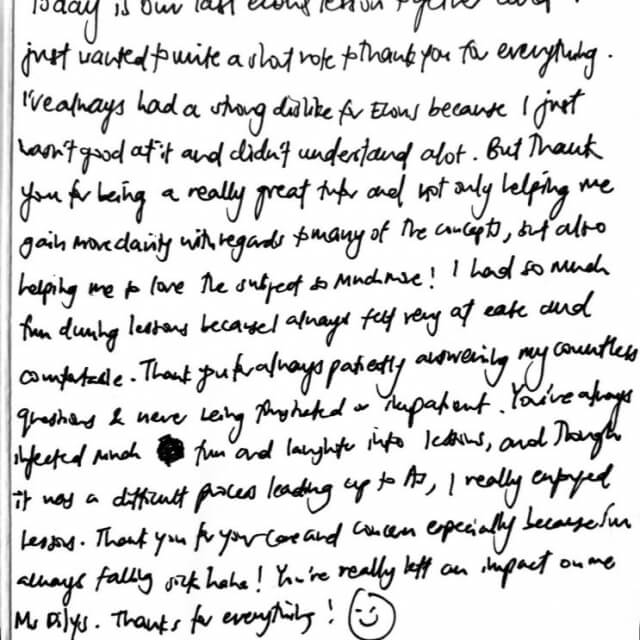 Today is our last econs lesson together and I
just wanted to write a short note to thank you for everything.
I've always had a strong dislike for Econs because I just
wasn't good at it and didn't understand alot. But Thank
you for being a really great tutor and not only helping me
gain more clarity with regards to many of the concepts, but also
helping me to love the subject so much more! I had so much
fun during lessons because I always felt very at ease and
comfortable. Thank you for always patiently answering my countless
questions & never being frustrated or impatient. You've always
injected much fun and laughter into lessons, and Though
it was a difficult process leading up to As, I really enjoyed
lessons. Thank you for your care and concern especially because I'm
always falling sick haha! You're really left an impact on me
Ms Dilys. Thanks for everything!